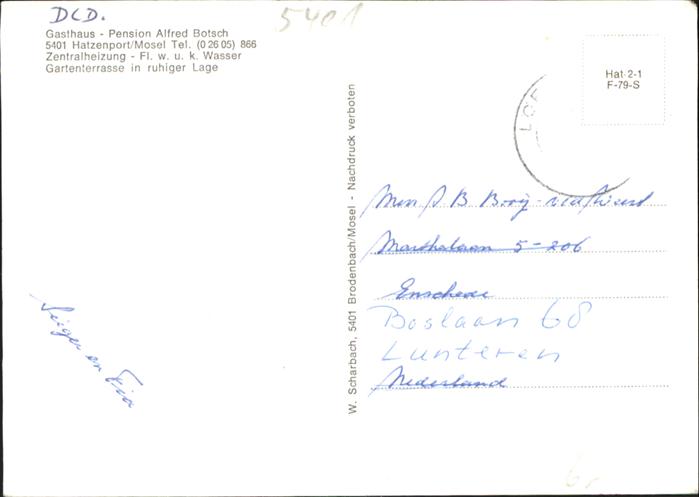 DLD.
5401
Gasthaus - Pension Alfred Botsch
5401 Hatzenport/Mosel Tel. (0 26 05) 866
Zentralheizung - Fl. w. u. k. Wasser
Gartenterrasse in ruhiger Lage
W. Scharbach, 5401 Brodenbach/Mosel - Nachdruck verboten
Hat-2-1
F-79-S
LOF
B
5-206
Enschede
Boslaan 68
Lunteren
Nederland
en